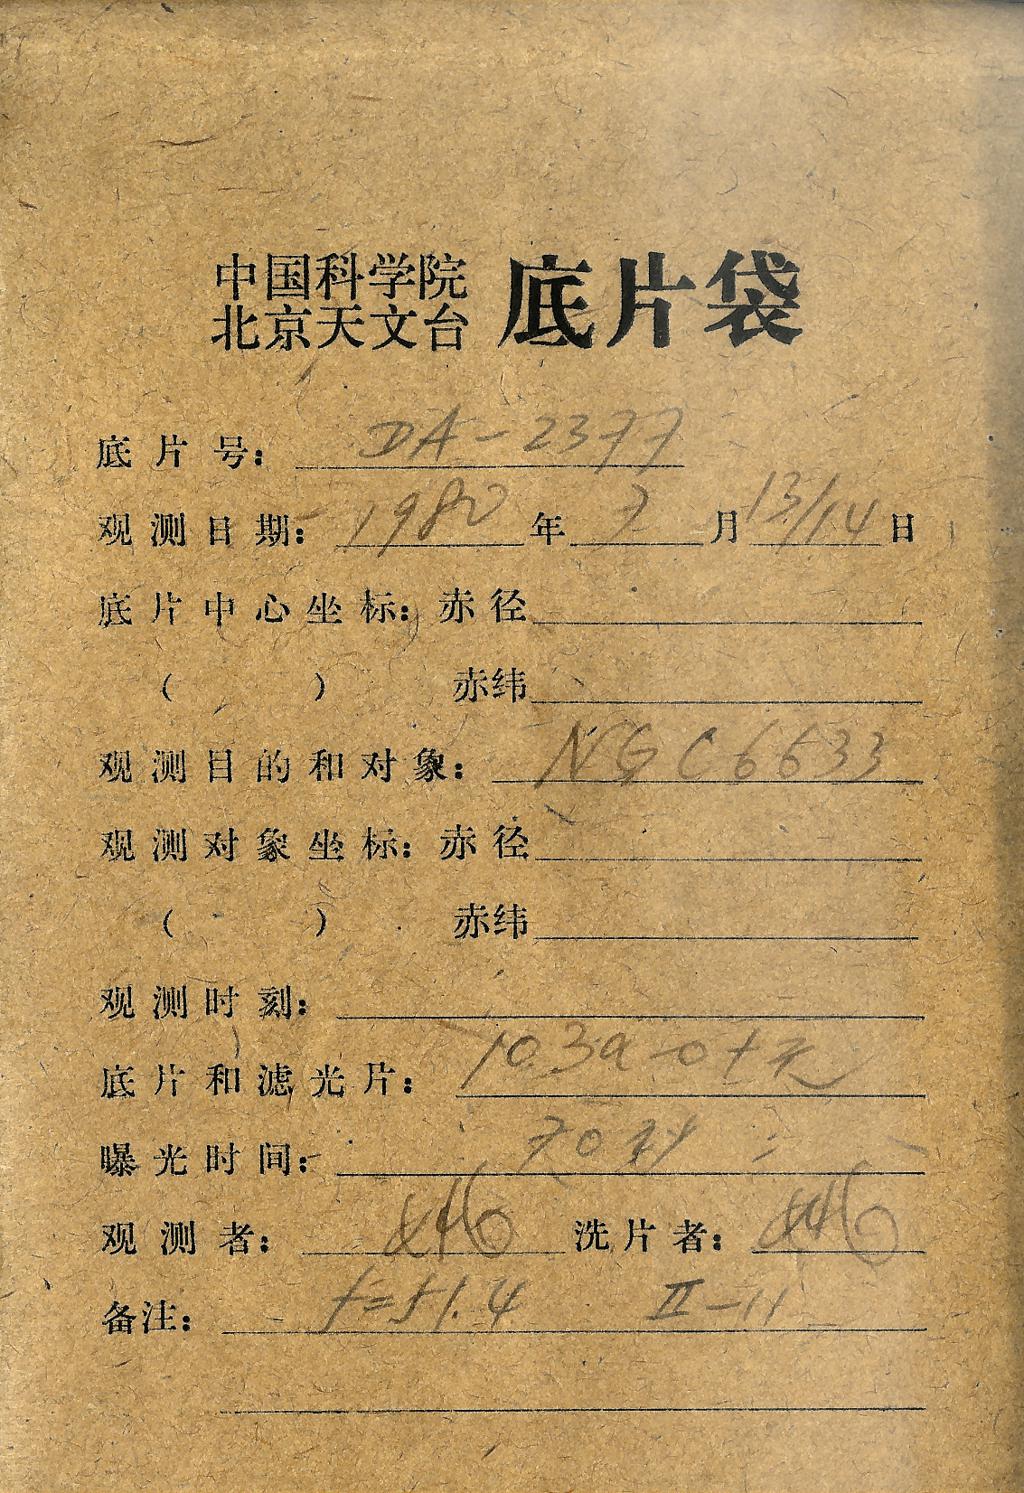 中国科学院
北京天文台 底片袋
底片号： DA-2377
观测日期： 1980 年 7 月 13/14 日
底片中心坐标：赤径
（ ） 赤纬
观测目的和对象： NGC6633
观测对象坐标：赤径
（ ） 赤纬
观测时刻：
底片和滤光片： 103a-0+无
曝光时间： 70秒
观测者： 洗片者：
备注： f=51.4 II-11